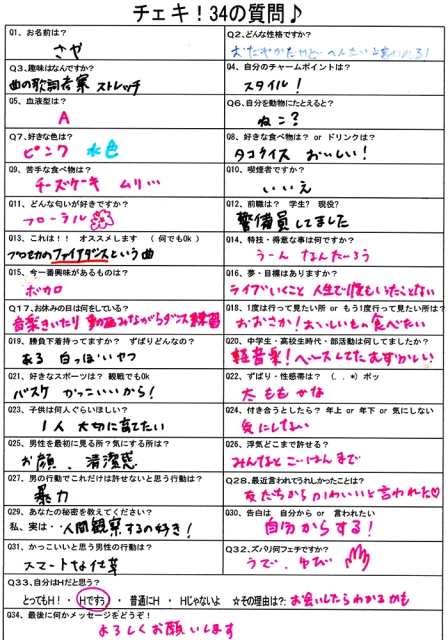 チェキ！34の質問♪
Q1、お名前は？
さや
Q2、どんな性格ですか？
Q3、趣味はなんですか？
曲の歌詞考案 ストレッチ
Q4、自分のチャームポイントは？
スタイル！
Q5、血液型は？
A
Q6、自分を動物にたとえると？
ねこ？
Q7、好きな色は？
ピンク 水色
Q8、好きな食べ物は？ or ドリンクは？
タコライス おいしい！
Q9、苦手な食べ物は？
チーズケーキ ムリ…
Q10、喫煙者ですか？
いいえ
Q11、どんな匂いが好きですか？
フローラル
Q12、前職は？ 学生？ 現役？
警備員してました
Q13、これは！！ オススメします （ 何でもOk ）
プロセカのファイアダンスという曲
Q14、特技・得意な事は何ですか？
うーん なんだろう
Q15、今一番興味があるものは？
ボカロ
Q16、夢・目標はありますか？
ライブいくこと 人生で1度もいったことない
Q17、お休みの日は何をしている？
音楽きいたり 動画みながらダンス練習
Q18、1度は行って見たい所 or もう1度行って見たい所は？
おおさか！おいしいもの食べたい
Q19、勝負下着持ってますか？ ずばりどんなの？
ある 白っぽいヤツ
Q20、中学生・高校生時代・部活動は何してましたか？
軽音楽！ベースしてた むずかしい！
Q21、好きなスポーツは？ 観戦でもOk
バスケ かっこいいから！
Q22、ずばり・性感帯は？ （．．*）ポッ
太もも かな
Q23、子供は何人ぐらいほしい？
1人 大切に育てたい
Q24、付き合うとしたら？ 年上 or 年下 or 気にしない
気にしない
Q25、男性を最初に見る所？気にする所は？
お顔、清潔感
Q26、浮気どこまで許せる？
みんなと ごはんまで
Q27、男の行動でこれだけは許せないと思う行動は？
暴力
Q28、最近言われてうれしかったことは？
友だちから かわいいと言われた♡
Q29、あなたの秘密を教えてください？
私、実は・・人間観察するの好き！
Q30、告白は 自分から or 言われたい
自分からする！
Q31、かっこいいと思う男性の行動は？
スマートな仕草
Q32、ズバリ何フェチですか？
うで、ゆび
Q33、自分はHだと思う？
とってもH！・ Hですぅ ・ 普通にH ・ Hじゃないよ ☆その理由は？：お会いしたらわかるかも
Q34、最後に何かメッセージをどうぞ！
よろしくお願いします